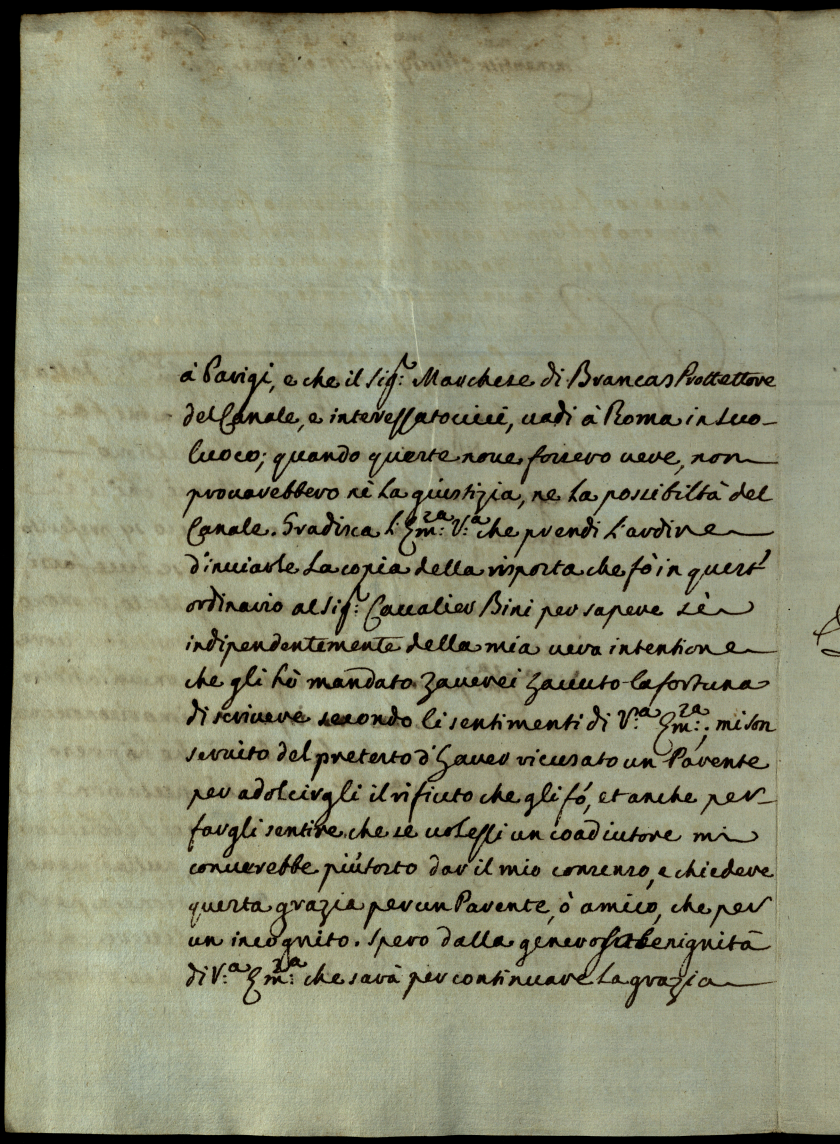 à Parigi, e che il Sig.r Marchese di Brancas Prottettore
del Canale, e interessato civi, vadi à Roma in suo
luoco; quando queste nove fossero vere, non
provarebbero nè la giustizia, ne la possibiltà del
Canale. Gradisca l'Em.za V.a che prendi l'ardire
d'inviarle la copia della risposta che fò in quest'
ordinario al Sig.r Cavalier Bini per sapere se
indipendentemente della mia vera intentione
che gli hò mandato haverei havuto la fortuna
di scrivere secondo li sentimenti di V.a Em.za; mi son
servito del pretesto d'haver ricusato un Parente
per adolcirgli il rifiuto che gli fó, et anche per
fargli sentire che se volessi un coadiutore mi
converebbe piùtosto dar il mio consenso, e chiedere
questa grazia per un Parente, ò amico, che per
un incognito. Spero dalla generosa benignità
di V.a Em.za che sarà per continuare la grazia